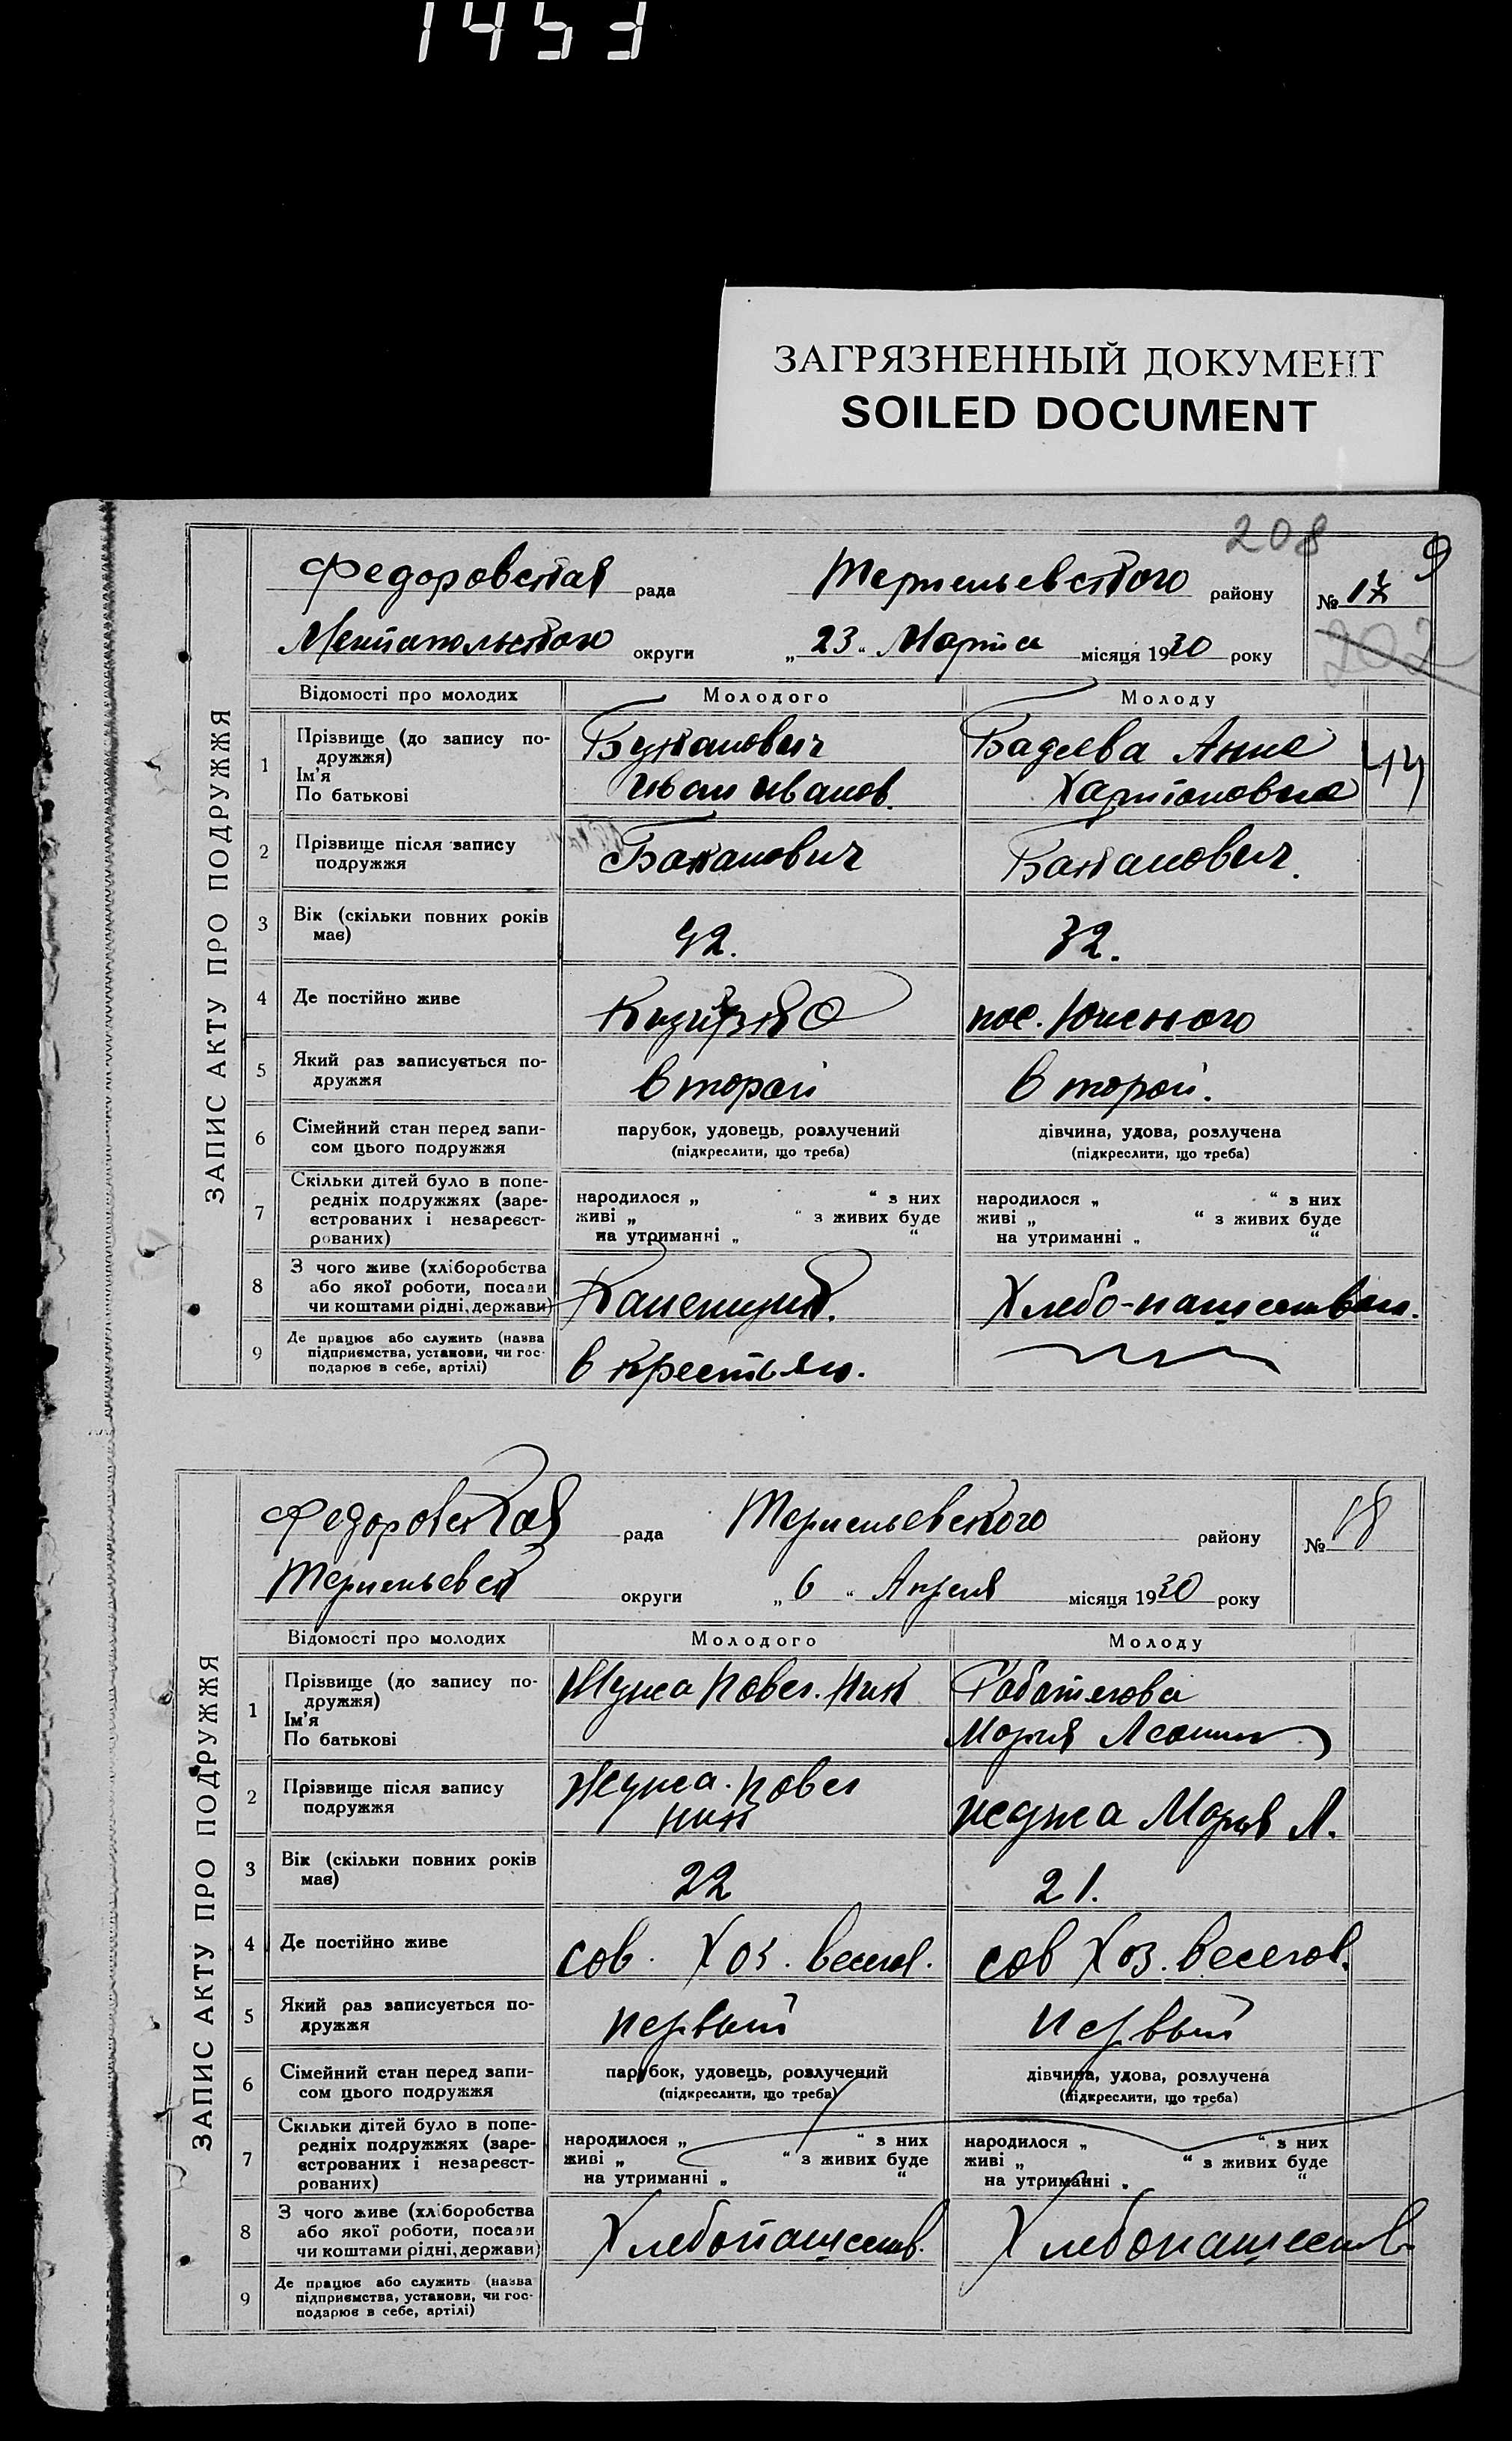 1453
ЗАГРЯЗНЕННЫЙ ДОКУМЕНТ
SOILED DOCUMENT
208
9
ЗАПИС АКТУ ПРО ПОДРУЖЖЯ
Федоровская рада Терпеньевского району № 17
Мелитопольского округи „23“ Марта місяця 1930 року
202
Відомості про молодих Молодого Молоду
1 Прізвище (до запису по-
дружжя)
Ім'я
По батькові
Буканович
Иван Иванов.
Бадеева Анна
Харитоновна
44
2 Прізвище після запису
подружжя
Баканович
Баканович.
3 Вік (скільки повних років
має)
42.
32.
4 Де постійно живе
пос.
5 Який раз записується по-
дружжя
второй
второй.
6 Сімейний стан перед запи-
сом цього подружжя
парубок, удовець, розлучений
(підкреслити, що треба)
дівчина, удова, розлучена
(підкреслити, що треба)
7 Скільки дітей було в попе-
редніх подружжях (заре-
єстрованих і незареєст-
рованих)
народилося „ “ з них
живі „ “ з живих буде
на утриманні „ “
народилося „ “ з них
живі „ “ з живих буде
на утриманні „ “
8 З чого живе (хліборобства
або якої роботи, посади
чи коштами рідні, держави)
Каменщик.
Хлебо-пашеством.
9 Де працює або служить (назва
підприємства, установи, чи гос-
подарює в себе, артілі)
в крестьян.
ЗАПИС АКТУ ПРО ПОДРУЖЖЯ
Федоровская рада Терпеньевского району № 18
Терпеньевск округи „6“ Апреля місяця 1930 року
Відомості про молодих Молодого Молоду
1 Прізвище (до запису по-
дружжя)
Ім'я
По батькові
Павел. Ник
Мария
2 Прізвище після запису
подружжя
Павел
Ник
Мария Л.
3 Вік (скільки повних років
має)
22
21.
4 Де постійно живе
сов. Хоз. весел.
сов Хоз. Веселов.
5 Який раз записується по-
дружжя
первый
первый
6 Сімейний стан перед запи-
сом цього подружжя
парубок, удовець, розлучений
(підкреслити, що треба)
дівчина, удова, розлучена
(підкреслити, що треба)
7 Скільки дітей було в попе-
редніх подружжях (заре-
єстрованих і незареєст-
рованих)
народилося „ “ з них
живі „ “ з живих буде
на утриманні „ “
народилося „ “ з них
живі „ “ з живих буде
на утриманні „ “
8 З чого живе (хліборобства
або якої роботи, посади
чи коштами рідні, держави)
Хлебопашеств.
Хлебопашеств
9 Де працює або служить (назва
підприємства, установи, чи гос-
подарює в себе, артілі)